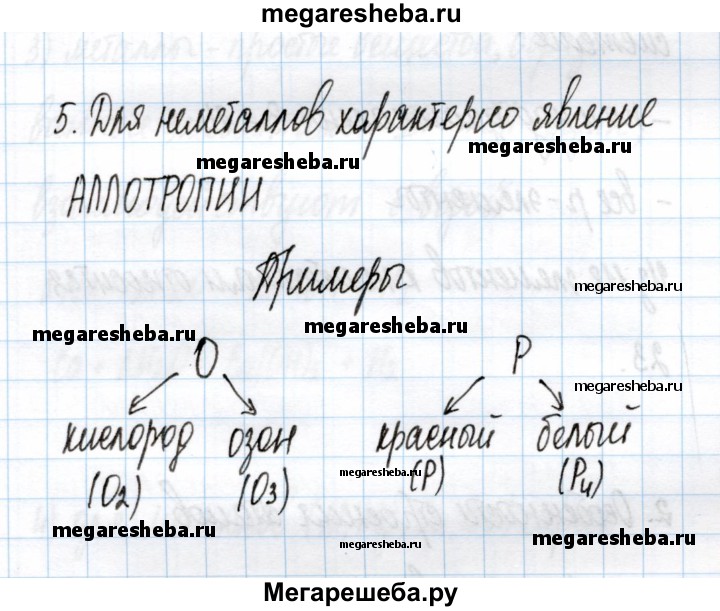 megaresheba.ru
5. Для неметаллов характерно явление
megaresheba.ru megaresheba.ru
АЛЛОТРОПИИ
Примеры
megaresheba.ru
megaresheba.ru megaresheba.ru
O P
megaresheba.ru
кислород озон красный белый
(O2) (O3) (P) (P4)
megaresheba.ru
megaresheba.ru megaresheba.ru megaresheba.ru
Мегарешеба.ру